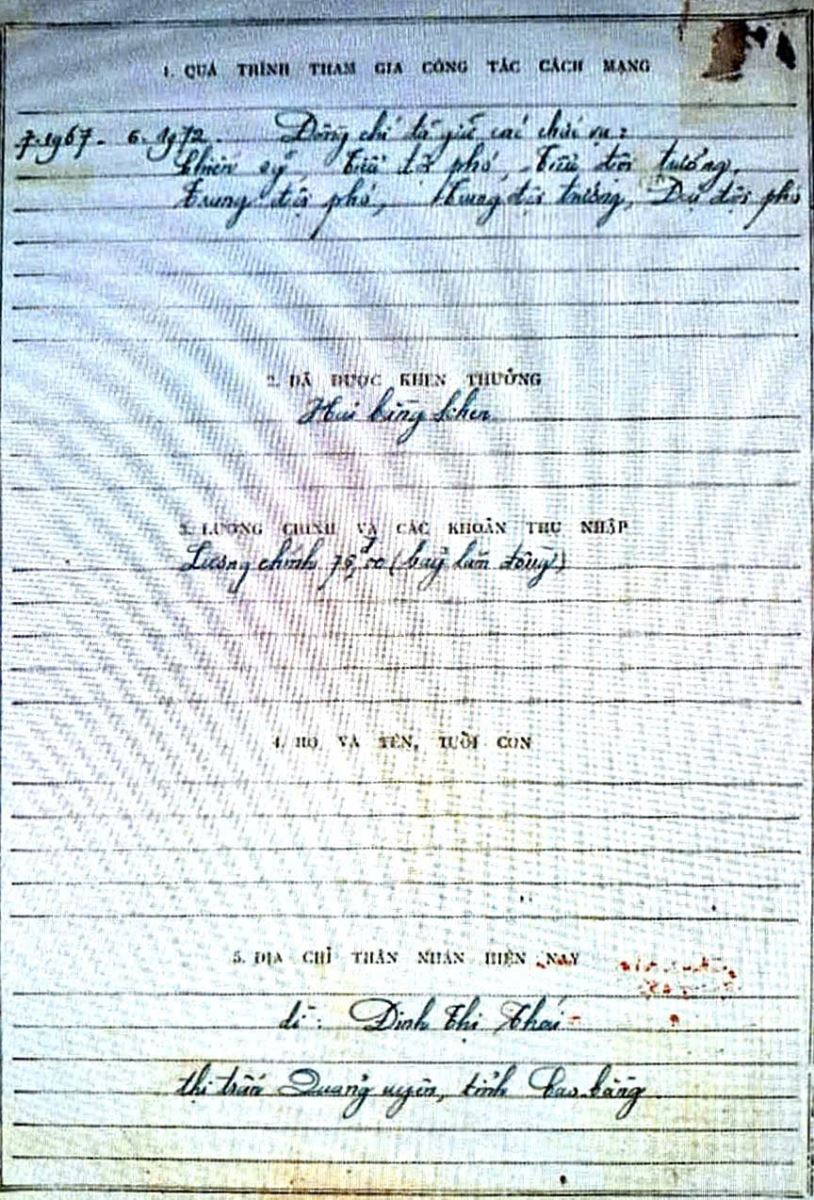 1. QUÁ TRÌNH THAM GIA CÔNG TÁC CÁCH MẠNG
7.1967 - 6.1972. Đồng chí đã giữ các chức vụ:
Chiến sỹ, Tiểu đội phó, Tiểu đội trưởng,
Trung đội phó, Trung đội trưởng, Đại đội phó
2. ĐÃ ĐƯỢC KHEN THƯỞNG
Hai bằng khen
3. LƯƠNG CHÍNH VÀ CÁC KHOẢN THU NHẬP
Lương chính 75,đ00 (bảy lăm đồng)
4. HỌ VÀ TÊN, TUỔI CON
5. ĐỊA CHỈ THÂN NHÂN HIỆN NAY
dì: Đinh Thị
thị trấn Quảng uyên, tỉnh Cao bằng